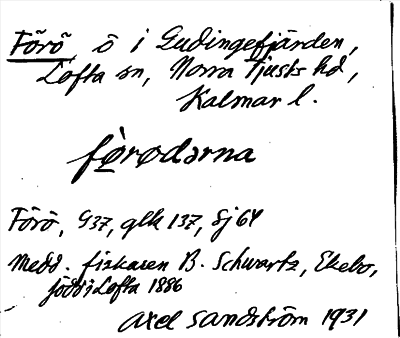 Förö, ö i Gudingefjärden,
Lofta sn, Norra Tjusts hd,
Kalmar l.
fö̀rødərna
Förö, G37, glk 137, Sj 64
Medd. fiskaren B. Schwartz, Ekebo,
född i Lofta 1886
Axel Sandström 1931